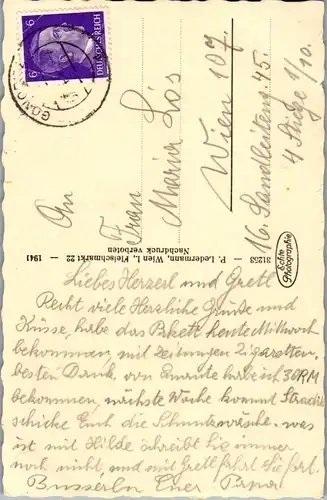 6 DEUTSCHES REICH 6
An
Frau
Maria Lös
Wien 107.
16. Sandleiteng. 45.
4 Stiege 1/10.
31253 — P. Ledermann, Wien, I., Fleischmarkt 22 — 1941
Nachdruck verboten
Echte
Photographie
Liebes Herzerl und Gretl
Recht viele Herzliche Grüße und
Küsse, habe das Pakett heute Mittwoch
bekommen, mit Zeitungen Zigaretten,
besten Dank, von habe ich 30 RM
bekommen, nächste Woche kommt
schicke Euch die Schmutzwäsche. was
ist mit Hilde schreibt Sie immer
noch nicht, und mit Gretl fährt Sie fort.
Busserln Euer Papa